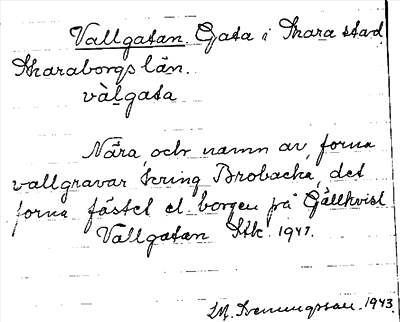 Vallgatan. Gata i Skara stad
Skaraborgs län.
vàlgata
Nära, och namn av, forna
vallgravar kring Brobacka, det
forna fästet el. borgen på Gällkvist
Vallgatan Stk. 1941.
1943.